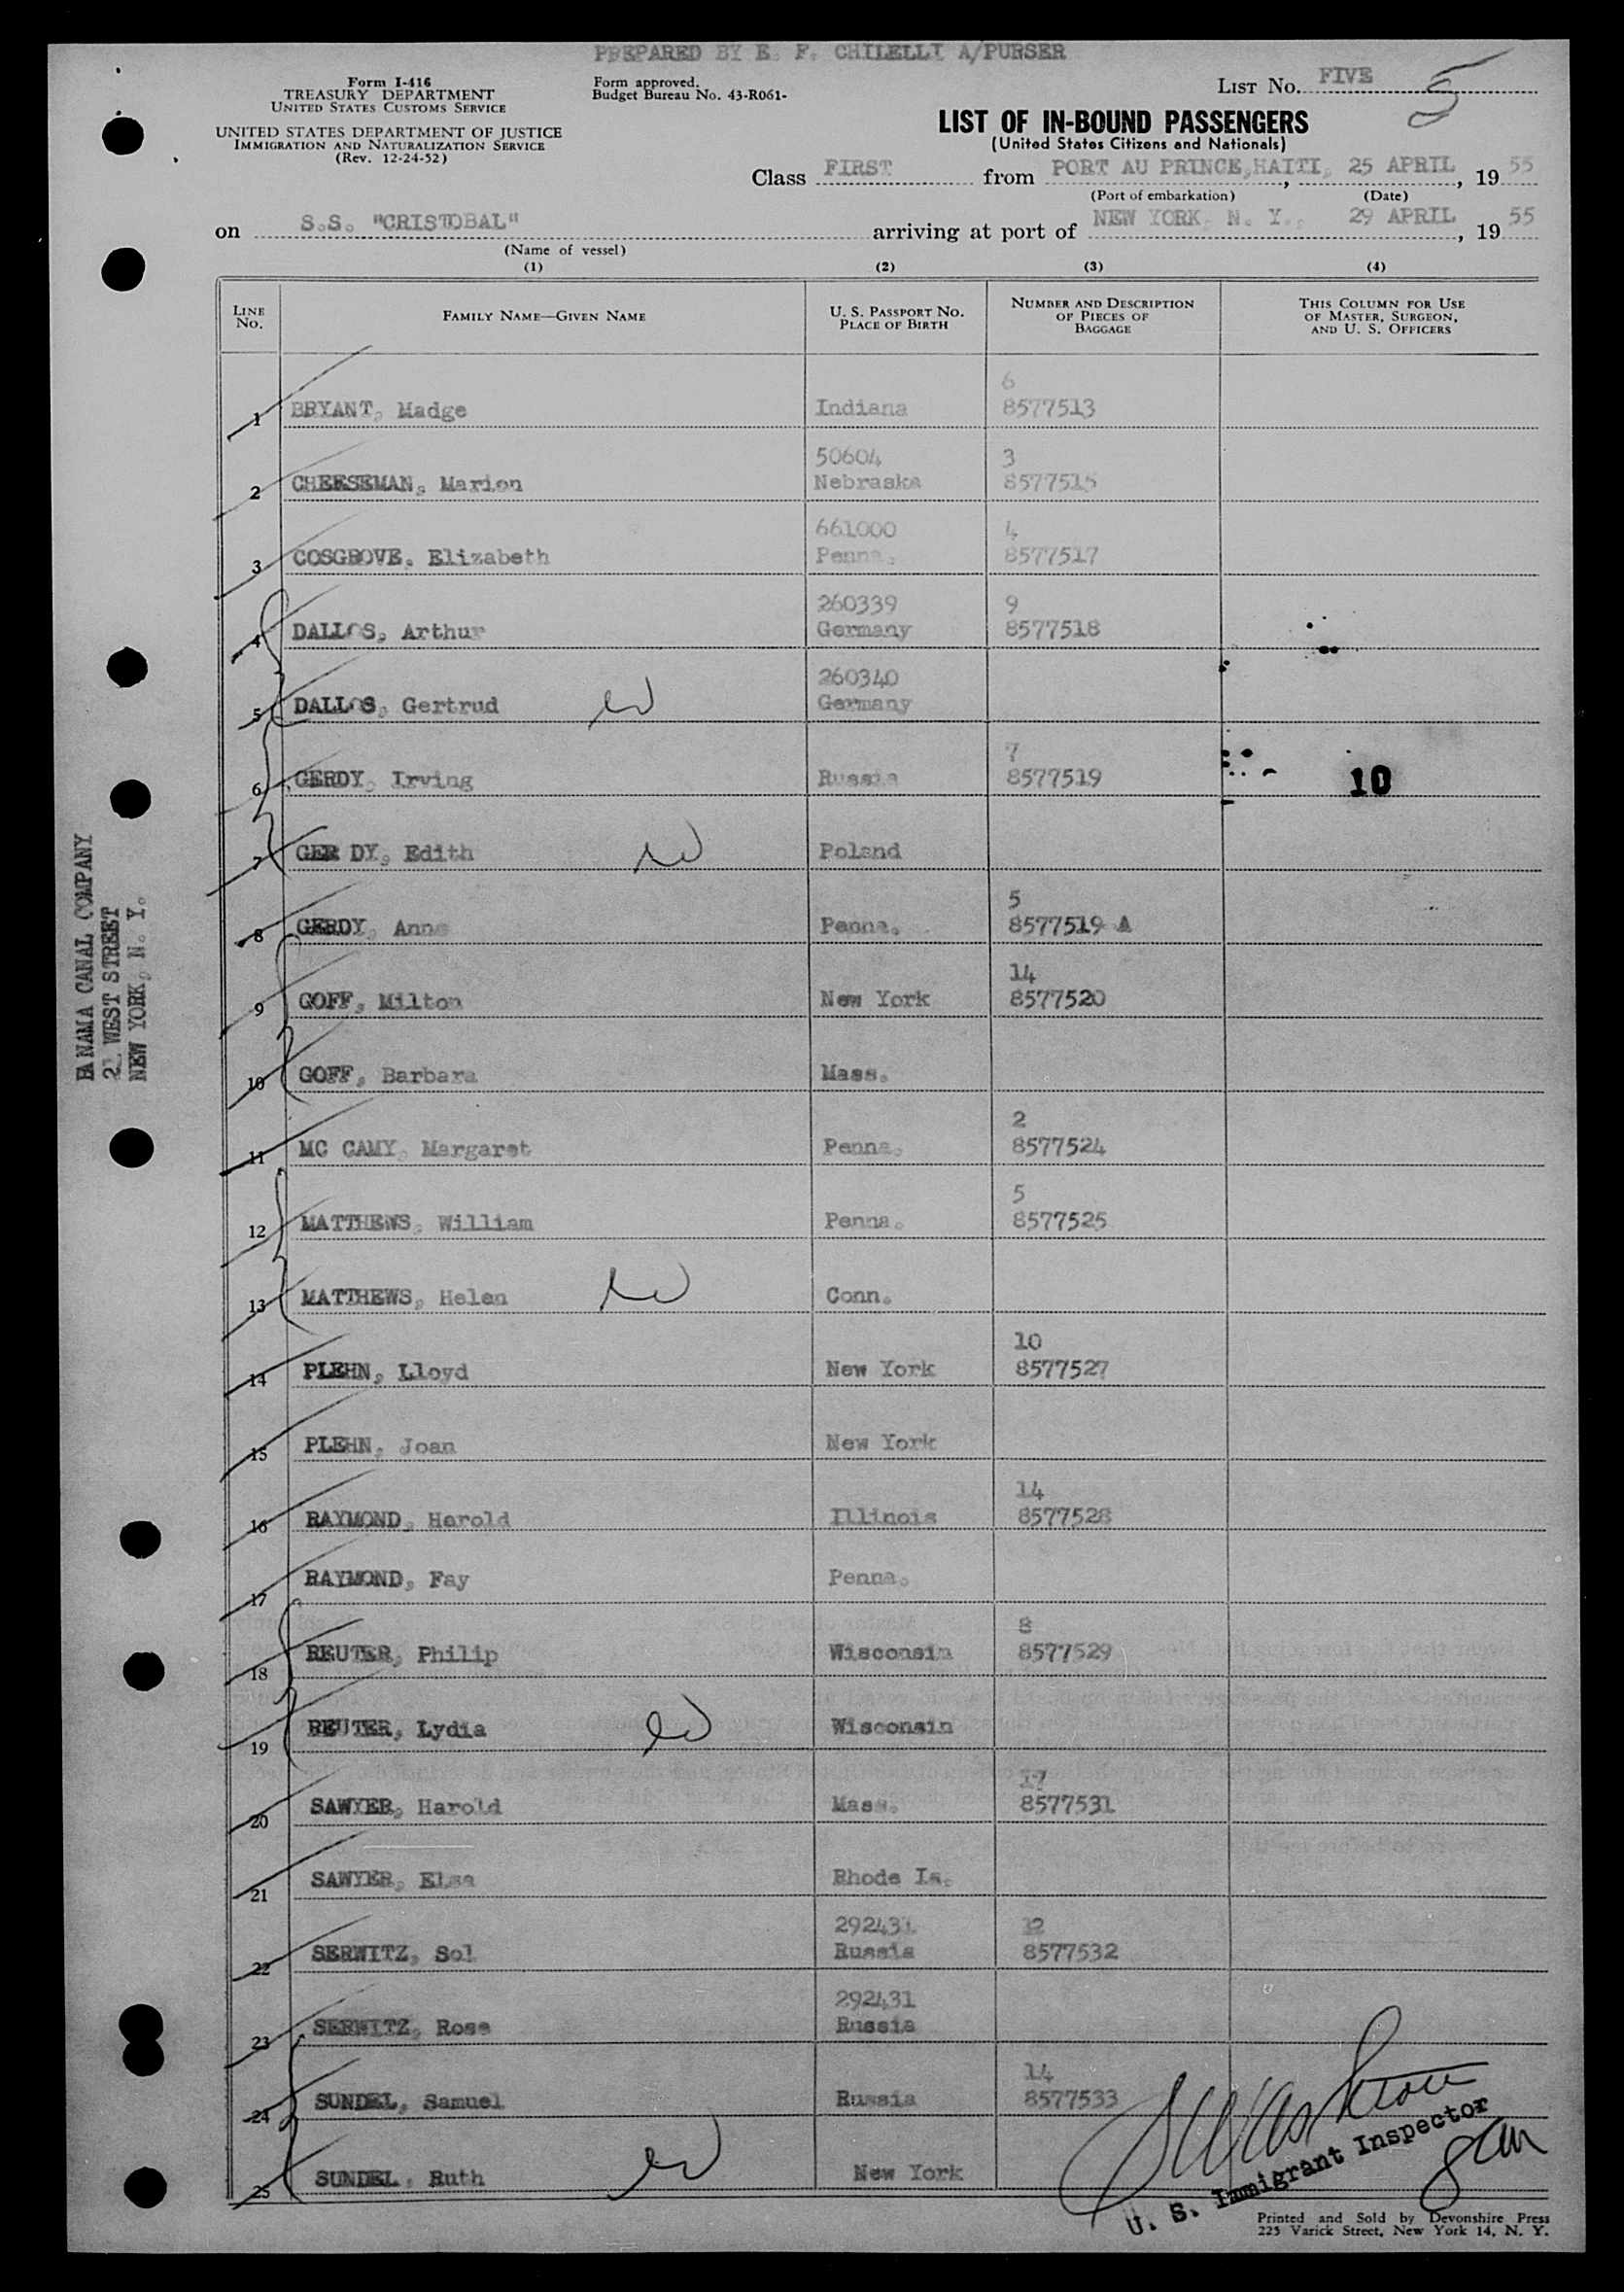 PREPARED BY E. F. CHILELLI A/PURSER
Form I-416
TREASURY DEPARTMENT
UNITED STATES CUSTOMS SERVICE
UNITED STATES DEPARTMENT OF JUSTICE
IMMIGRATION AND NATURALIZATION SERVICE
(Rev. 12-24-52)
Form approved.
Budget Bureau No. 43-R061-
LIST No. FIVE 5
LIST OF IN-BOUND PASSENGERS
(United States Citizens and Nationals)
Class FIRST from PORT AU PRINCE,HAITI, 25 APRIL, 1955
(Port of embarkation) (Date)
on S.S. "CRISTOBAL" arriving at port of NEW YORK, N. Y., 29 APRIL, 1955
(Name of vessel)
(1) (2) (3) (4)
LINE No. FAMILY NAME—GIVEN NAME U. S. PASSPORT NO. PLACE OF BIRTH NUMBER AND DESCRIPTION OF PIECES OF BAGGAGE THIS COLUMN FOR USE OF MASTER, SURGEON, AND U. S. OFFICERS
6
1 BRYANT, Madge Indiana 8577513
50604 3
2 CHEESEMAN, Marion Nebraska 8577515
661000 4
3 COSGROVE, Elizabeth Penna. 8577517
260339 9
4 DALLOS, Arthur Germany 8577518
260340
5 DALLOS, Gertrud Germany
7
6 GERDY, Irving Russia 8577519 10
7 GER DY, Edith Poland
5
8 GERDY, Anne Penna. 8577519 A
14
9 GOFF, Milton New York 8577520
10 GOFF, Barbara Mass.
2
11 MC CAMY, Margaret Penna. 8577524
5
12 MATTHEWS, William Penna. 8577525
13 MATTHEWS, Helen Conn.
10
14 PLEHN, Lloyd New York 8577527
15 PLEHN, Joan New York
14
16 RAYMOND, Harold Illinois 8577528
17 RAYMOND, Fay Penna.
8
18 REUTER, Philip Wisconsin 8577529
19 REUTER, Lydia Wisconsin
17
20 SAWYER, Harold Mass. 8577531
21 SAWYER, Elsa Rhode Is.
292431 12
22 SERWITZ, Sol Russia 8577532
292431
23 SERWITZ, Rose Russia
14
24 SUNDEL, Samuel Russia 8577533
25 SUNDEL, Ruth New York
U. S. Immigrant Inspector
Printed and Sold by Devonshire Press
225 Varick Street, New York 14, N. Y.
PANAMA CANAL COMPANY
21 WEST STREET
NEW YORK, N. Y.